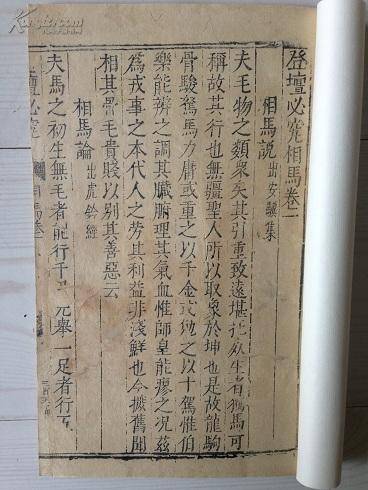 登壇必究相馬卷一
相馬說 出安驥集
夫毛物之類衆矣其引重致遠堪任於生者獨馬可
稱故其行也無疆聖人所以取象於坤也是故龍駒
骨駿駑馬力庸或重之以千金或勉之以十駕惟伯
樂能辨之調其臟腑理其氣血惟師皇能療之况兹
爲戎事之本代人之勞其利益非淺鮮也今摭舊聞
相其骨毛貴賤以別其善惡云
相馬論 出虎鈐經
夫馬之初生無毛者能行千里 元舉一足者行五
壇必究
相馬卷